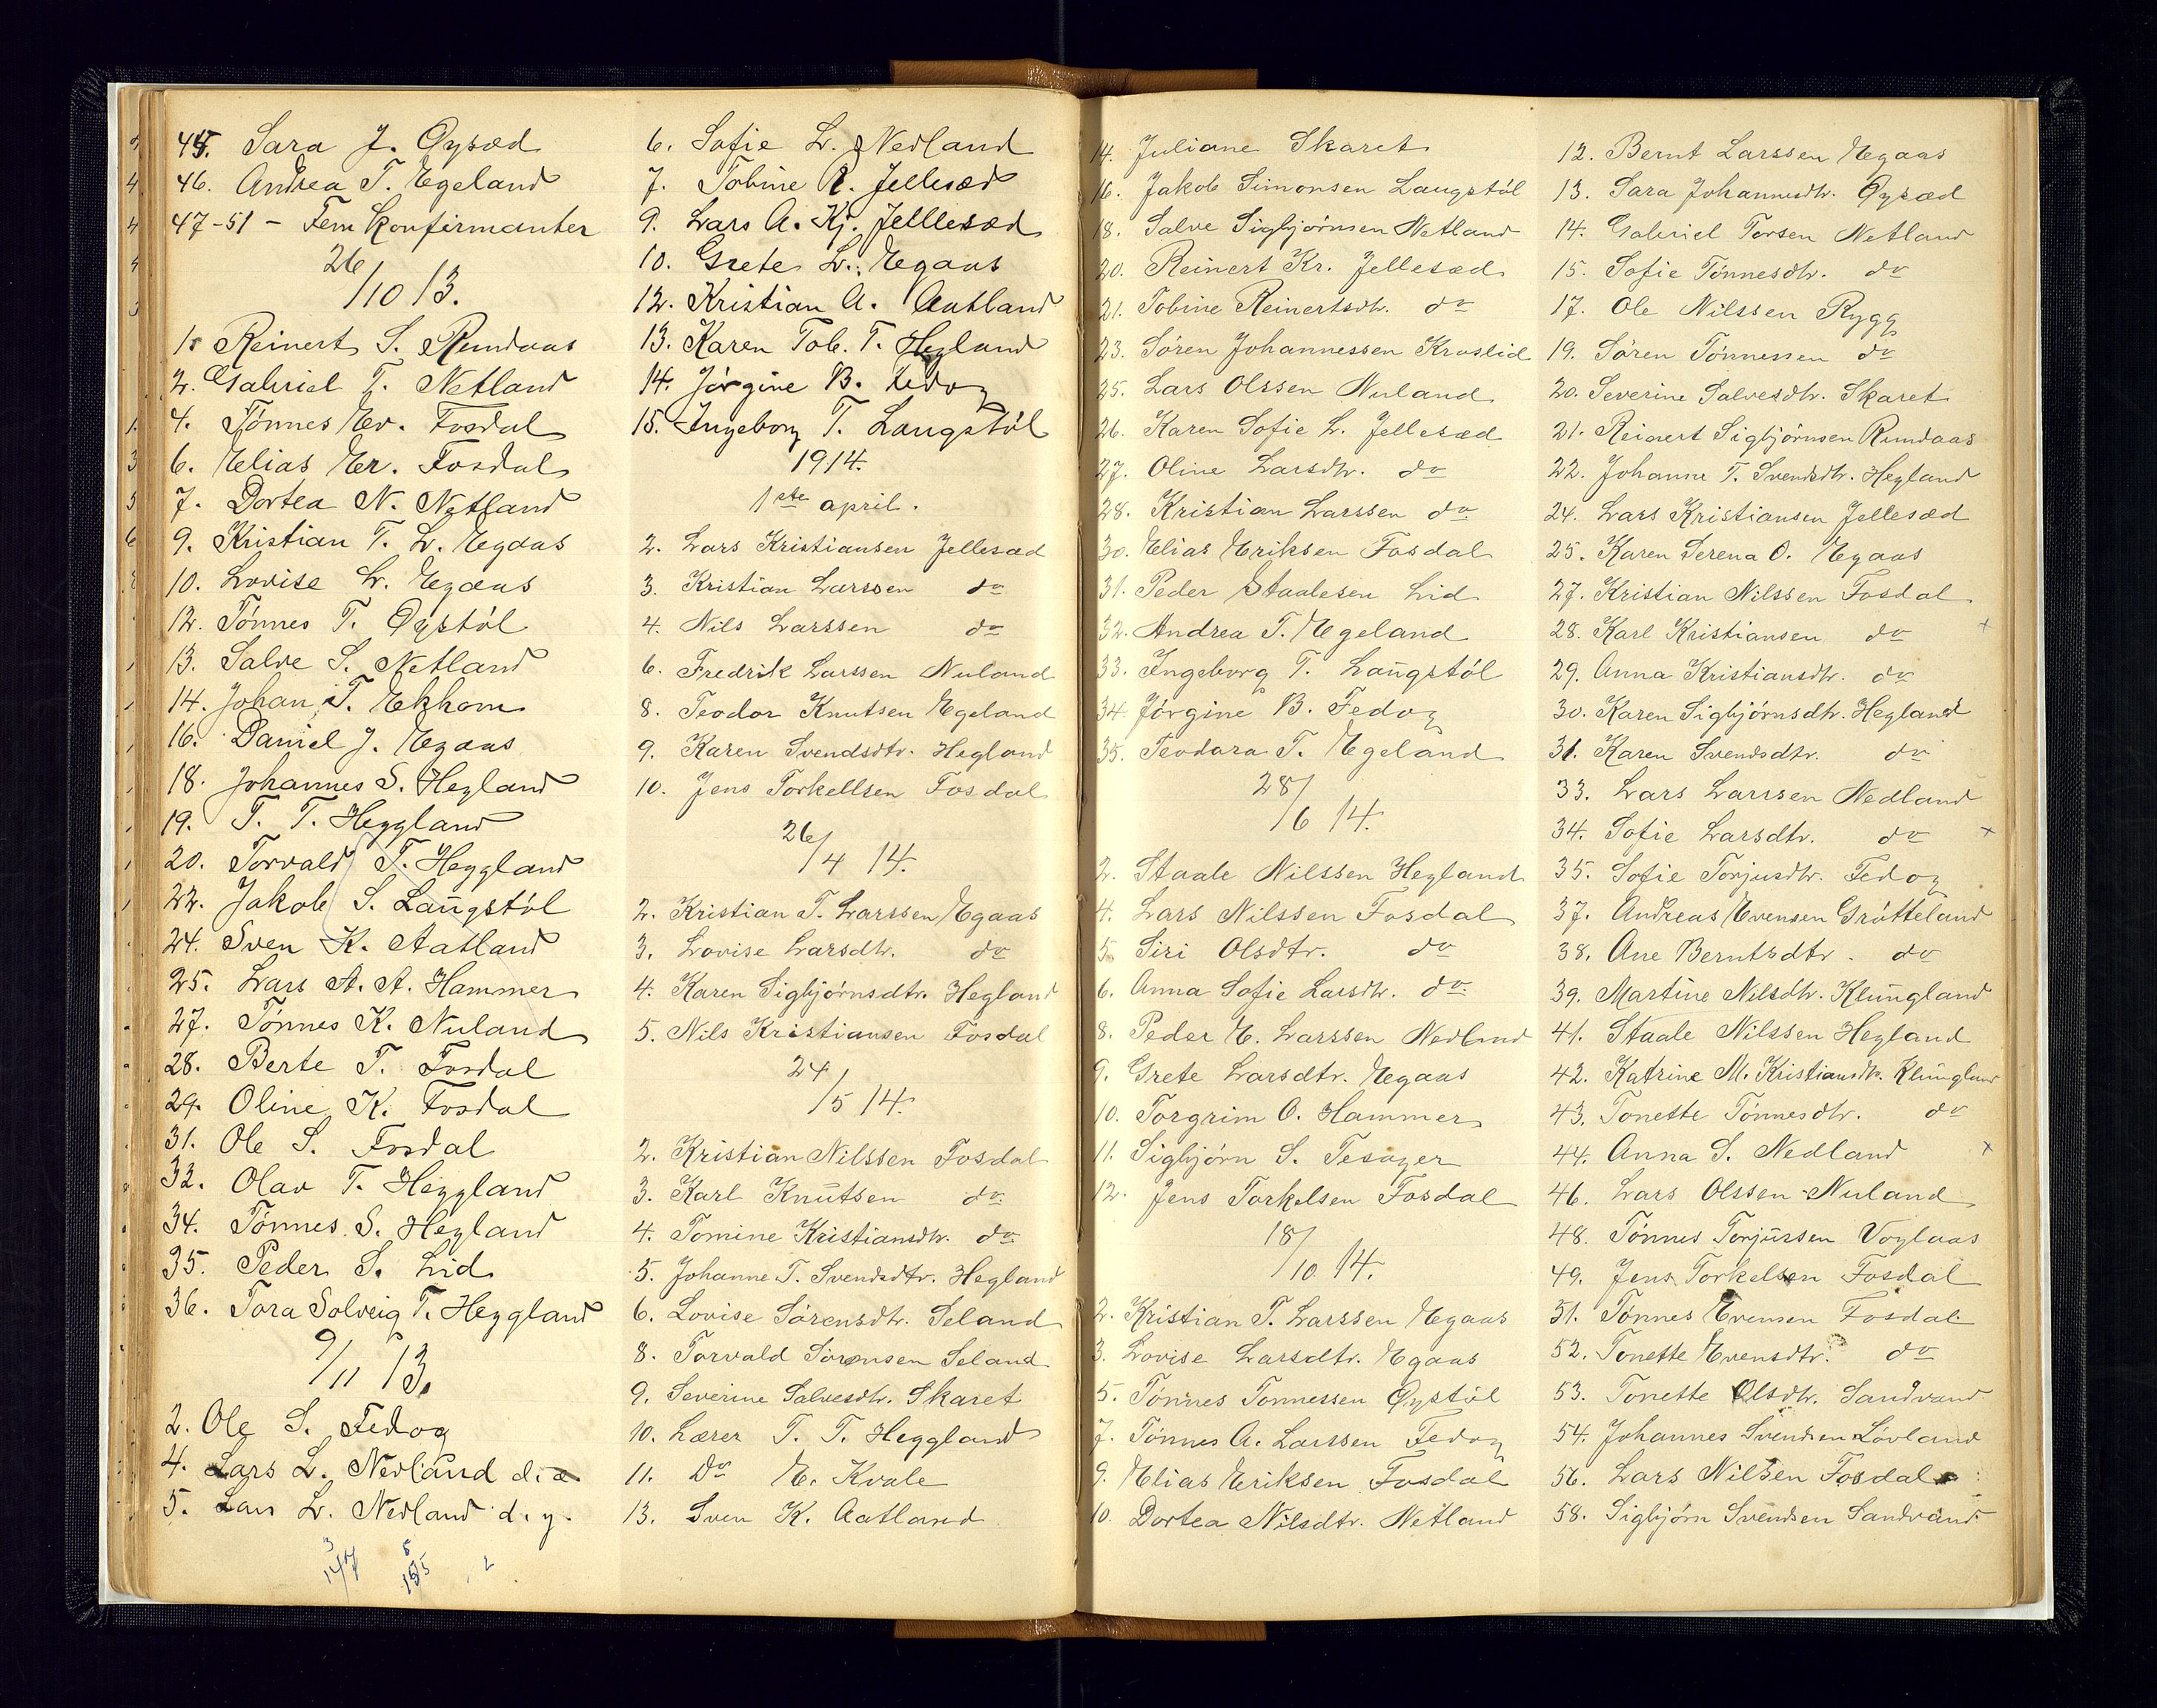 45. Sara J. Øysæd
46. Andrea T. Egeland
47-51 - Fem konfirmanter
26/10 13.
1. Reinert S. Rundaas
2. Gabriel T. Netland
4. Tønnes Ev. Fosdal
6. Elias Er. Fosdal
7. Dortea N. Netland
9. Kristian T. L. Egaas
10. Lovise L. Egaas
12. Tønnes T. Øystøl
13. Salve S. Netland
14. Johan T. Ekhom
16. Daniel J. Egaas
18. Johannes S. Hegland
19. T. T. Heggland
20. Torvald T. Heggland
22. Jakob S. Langstøl
24. Sven K. Aatland
25. Lars A. A. Hammer
27. Tønnes K. Nuland
28. Berte T. Fosdal
29. Oline K. Fosdal
31. Ole S. Fosdal
32. Olav T. Heggland
34. Tønnes S. Hegland
35. Peder S. Lid
36. Tora Solveig T. Heggland
9/11 13.
2. Ole S. Fedog
4. Lars L. Nedland d. æ
5. Lars L. Nedland d. y.
6. Sofie L. Nedland
7. Tobine R. Jellesæd
9. Lars A. Kj. Jellesæd
10. Grete L. Egaas
12. Kristian A. Aatland
13. Karen Tob. T. Hegland
14. Jørgine B. Fedog
15. Ingeborg T. Langstøl
1914.
1ste april.
2. Lars Kristiansen Jellesæd
3. Kristian Larssen do
4. Nils Larssen do
6. Fredrik Larssen Nuland
8. Teodor Knutsen Egeland
9. Karen Svendsdtr. Hegland
10. Jens Torkellsen Fosdal
26/4 14.
2. Kristian T. Larssen Egaas
3. Lovise Larsdtr. do
4. Karen Sigbjørnsdtr. Hegland
5. Nils Kristiansen Fosdal
24/5 14.
2. Kristian Nilssen Fosdal
3. Karl Knutsen do
4. Tomine Kristiansdtr. do
5. Johanne T. Svendsdtr. Hegland
6. Lovise Sørensdtr. Seland
8. Torvald Sørensen Seland
9. Severine Salvesdtr. Skaret
10. Lærer T. T. Heggland
11. Do E. Kvale
13. Sven K. Aatland
14. Juliane Skaret
16. Jakob Simonsen Laugstøl
18. Salve Sigbjørnsen Netland
20. Reinert Kr. Jellesæd
21. Tobine Reinertsdtr. do
23. Søren Johannessen Kroslid
25. Lars Olssen Nuland
26. Karen Sofie L. Jellesæd
27. Oline Larsdtr. do
28. Kristian Larssen do
30. Elias Eriksen Fosdal
31. Peder Staalesen Lid
32. Andrea T. Egeland
33. Ingeborg T. Langstøl
34. Jørgine B. Fedog
35. Teodara T. Egeland
28/6 14.
2. Staale Nilssen Hegland
4. Lars Nilssen Fosdal
5. Siri Olsdtr. do
6. Anna Sofie Larsdtr. do
8. Peder E. Larssen Nedland
9. Grete Larsdtr. Egaas
10. Torgrim O. Hammer
11. Sigbjørn S. Tesager
12. Jens Torkelsen Fosdal
18/10 14.
2. Kristian T. Larssen Egaas
3. Lovise Larsdtr. Egaas
5. Tønnes Tønnessen Øystøl
7. Tønnes A. Larssen Fedog
9. Elias Eriksen Fosdal
10. Dortea Nilsdtr. Netland
12. Bernt Larssen Egaas
13. Sara Johannesdtr. Øysæd
14. Gabriel Torsen Netland
15. Sofie Tønnesdtr. do
17. Ole Nilssen Rygg
19. Søren Tønnessen do
20. Severine Salvesdtr. Skaret
21. Reinert Sigbjørnsen Rundaas
22. Johanne T. Svendsdtr. Hegland
24. Lars Kristiansen Jellesæd
25. Karen Serena O. Egaas
27. Kristian Nilssen Fosdal
28. Karl Kristiansen do
29. Anna Kristiansdtr. do
30. Karen Sigbjørnsdtr. Hegland
31. Karen Svendsdtr. do
33. Lars Larssen Nedland
34. Sofie Larsdtr. do
35. Sofie Torjusdtr. Fedog
37. Andreas Evensen Grøtteland
38. Ane Berntsdtr. do
39. Martine Nilsdtr. Klungland
41. Staale Nilssen Hegland
42. Katrine M. Kristiansdtr. Klungland
43. Tonette Tønnesdtr. do
44. Anna S. Nedland
46. Lars Olssen Nuland
48. Tønnes Torjussen Voglaas
49. Jens Torkelsen Fosdal
51. Tønnes Evensen Fosdal
52. Tonette Evensdtr. do
53. Tonette Olsdtr. Sandvand
54. Johannes Svendsen Løvland
56. Lars Nilsen Fosdal
58. Sigbjørn Svendsen Sandvand